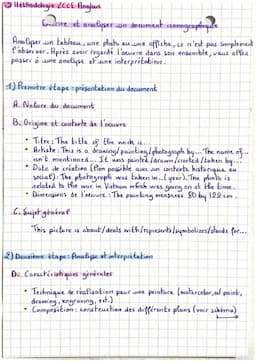 Méthodologie LLCE Anglais
Décrire et analyser un document iconographique
Analyser un tableau, une photo ou une affiche, ce n'est pas simplement
l'observer. Après avoir regardé l'œuvre dans son ensemble, vous allez
passer à une analyse et une interprétation.
1) Première étape : présentation du document
A. Nature du document
B. Origine et contexte de l'œuvre
• Titre : The title of the work is...
• Artiste : This is a drawing/painting/photograph by... The name of...
isn't mentioned... It was painted/drawn/created/taken by...
• Date de création (+ possible avec un contexte historique ou
social) : The photograph was taken in... (year). The photo is
related to the war in Vietnam which was going on at the time.
• Dimensions de l'œuvre : The painting measures 80 by 122 cm.
C. Sujet général
This picture is about/deals with/represents/symbolizes/stands for...
2) Deuxième étape : Analyse et interprétation
D. Caractéristiques générales
• Technique de réalisation pour une peinture (watercolor, oil paint,
drawing, engraving, ect.)
• Composition : construction des différents plans (voir schéma)